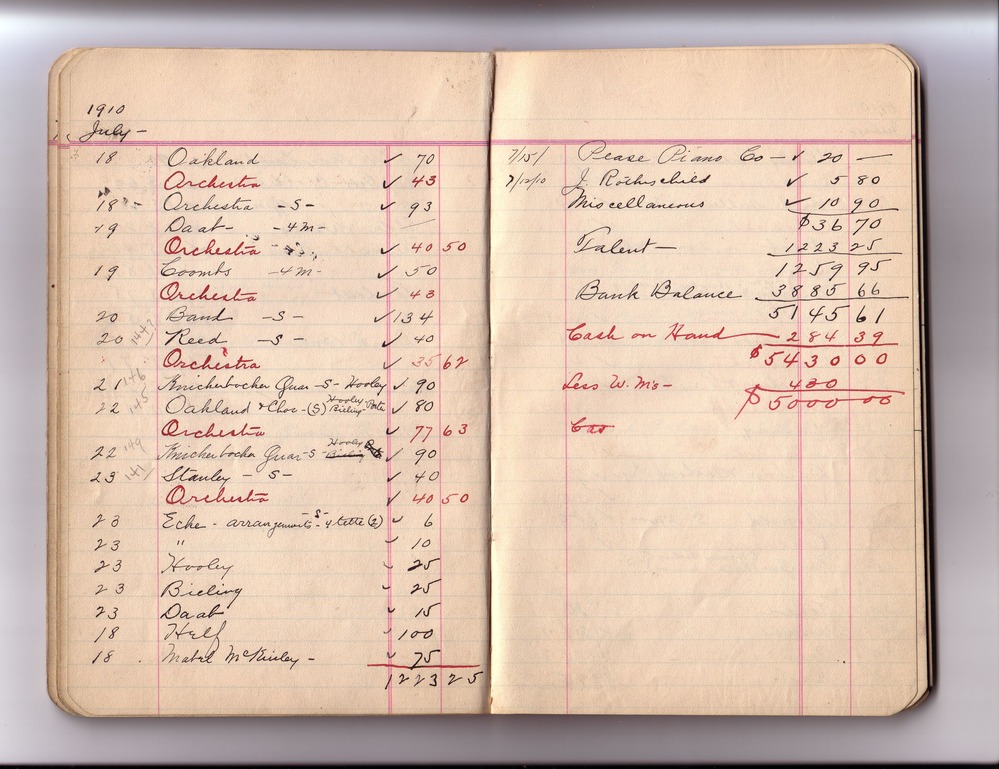 1910
July -
18 Oakland ✓ 70
Orchestra ✓ 43
18 - Orchestra -S- ✓ 93
19 Daab - -4m-
Orchestra ✓ 40 50
19 Coombs -4m- ✓ 50
Orchestra ✓ 43
20 Band -S- ✓ 134
20 Reed -S- ✓ 40
Orchestra ✓ 35 62
21 146 Knickerbocker Quar -S- Hooley ✓ 90
22 145 Oakland & Cho - (S) Hooley Bieling ✓ 80
Orchestra ✓ 77 63
22 149 Knickerbocker Quar -S- Hooley ✓ 90
23 141 Stanley - S - ✓ 40
Orchestra ✓ 40 50
23 Ecke - arrangements -S- 4tette (2) ✓ 6
23 " ✓ 10
23 Hooley ✓ 25
23 Bieling ✓ 25
23 Daab ✓ 15
18 Helf ✓ 100
18 Mabel McKinley - ✓ 75
1223 25
7/15/ Pease Piano Co - ✓ 20 —
7/12/10 J. Rothschild ✓ 5 80
Miscellaneous ✓ 10 90
$36 70
Talent - 1223 25
1259 95
Bank Balance 3885 66
5145 61
Cash on Hand 284 39
$5430 00
Less W. M's - 430
$5000 00
Cas